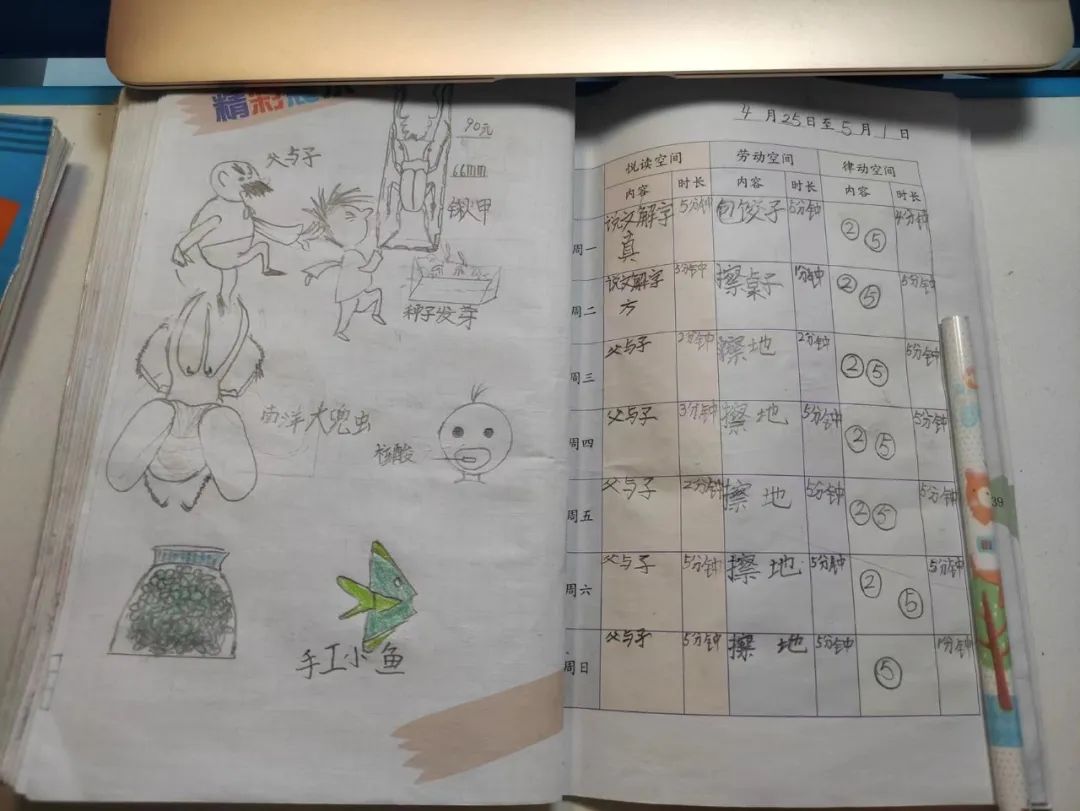 精彩
父与子
90元
66mm
锹甲
种子发芽
南洋大兜虫
核酸
手工小鱼
4月25日至5月1日
悦读空间 劳动空间 律动空间
内容 时长 内容 时长 内容 时长
周一 说文解字 真 5分钟 包饺子 5分钟 ② ⑤ 4分钟
周二 说文解字 方 5分钟 擦桌子 1分钟 ② ⑤ 5分钟
周三 父与子 2分钟 擦地 2分钟 ② ⑤ 5分钟
周四 父与子 3分钟 擦地 5分钟 ② ⑤ 5分钟
周五 父与子 2分钟 擦地 5分钟 ② ⑤ 5分钟
周六 父与子 5分钟 擦地 5分钟 ② ⑤ 5分钟
周日 父与子 5分钟 擦地 5分钟 ⑤ 1分钟
39